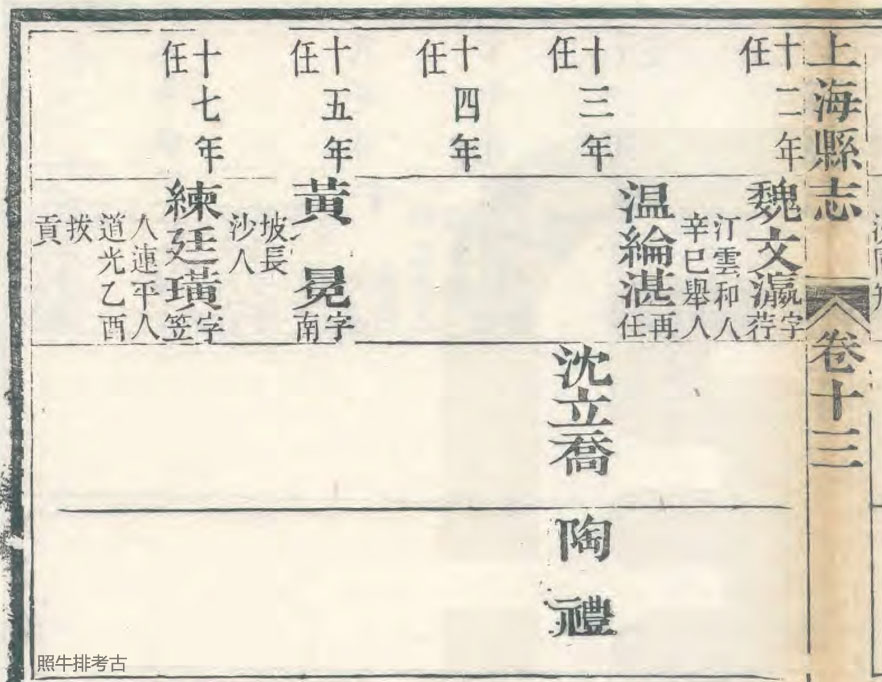 上海縣志
卷十三
十二年
任
魏文瀛字
荇
汀雲和人
辛巳舉人
温綸湛再
任
十三年
任
沈立喬
陶禮
十四年
任
十五年
任
黃冕字
南
坡長
沙人
十七年
任
練廷璜字
笠
人連平人
道光乙酉
拔
貢
照牛排考古